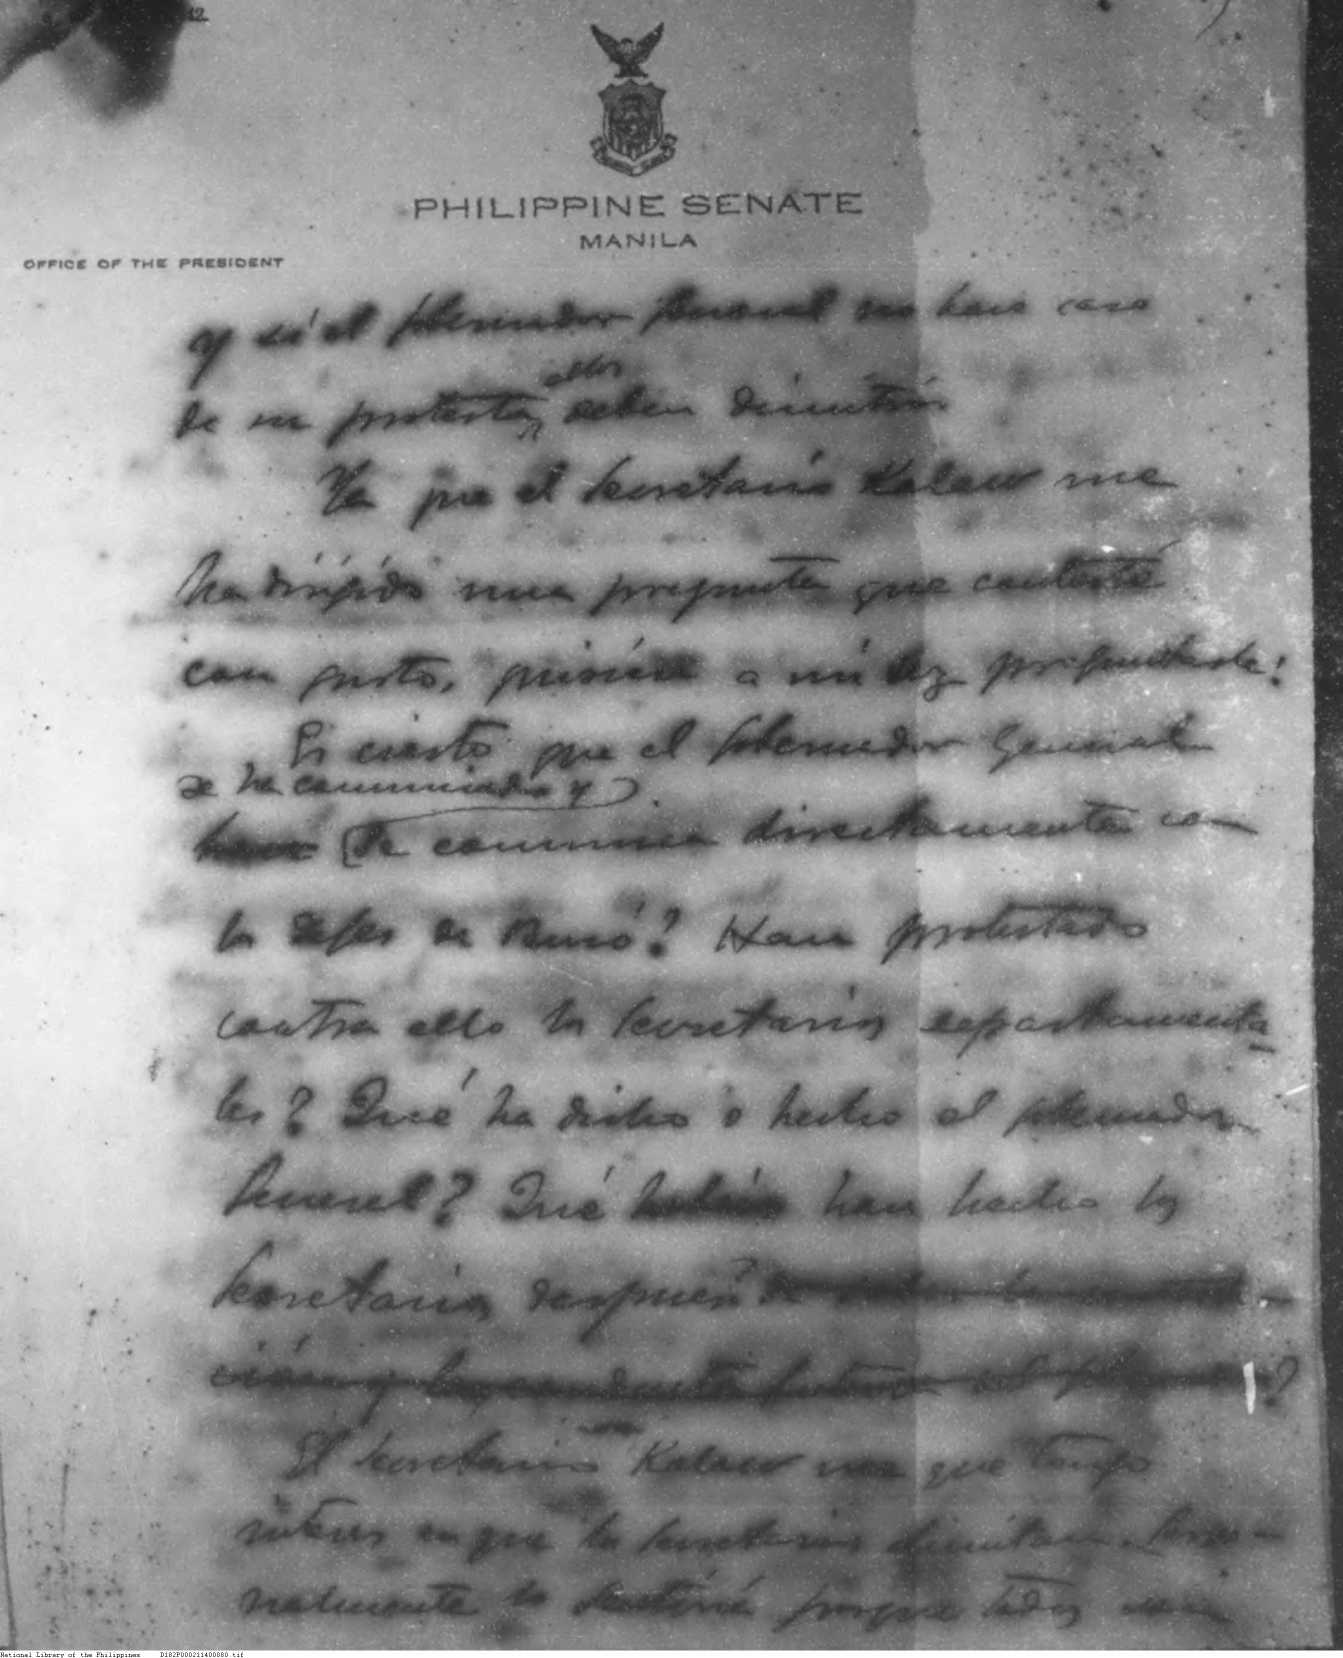 PHILIPPINE SENATE
MANILA
OFFICE OF THE PRESIDENT
y si el Gobernador General no hace caso
de su protesta, ellos deben dimitir
Ya que el Secretario Kalaw me
ha dirigido una pregunta que contesté
con gusto, quisiera a mi vez preguntarle:
Es cierto que el Gobernador General
se ha comunicado y
se comunica directamente con
los Jefes de Buró? Han protestado
contra ello los Secretarios departamenta
les? Qué ha dicho o hecho el Gobernador
General? Qué han hecho los
Secretarios después
El Secretario Kalaw que tengo
interés en que los Secretarios dimitan. Perso-
nalmente lo sentiría porque todos son
National Library of the Philippines D182P000211400080.tif